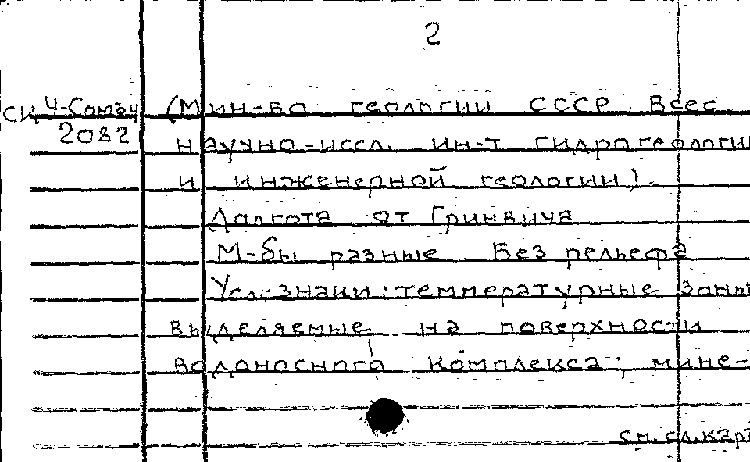 2
(Мин-во геологии СССР Всес.
2082 научно-иссл. ин-т гидрогеологии
и инженерной геологии).
Долгота от Гринвича
М-бы разные Без рельефа
Усл. знаки: температурные зоны
выделяемые на поверхности
водоносного комплекса; мине-
см. сл. карт